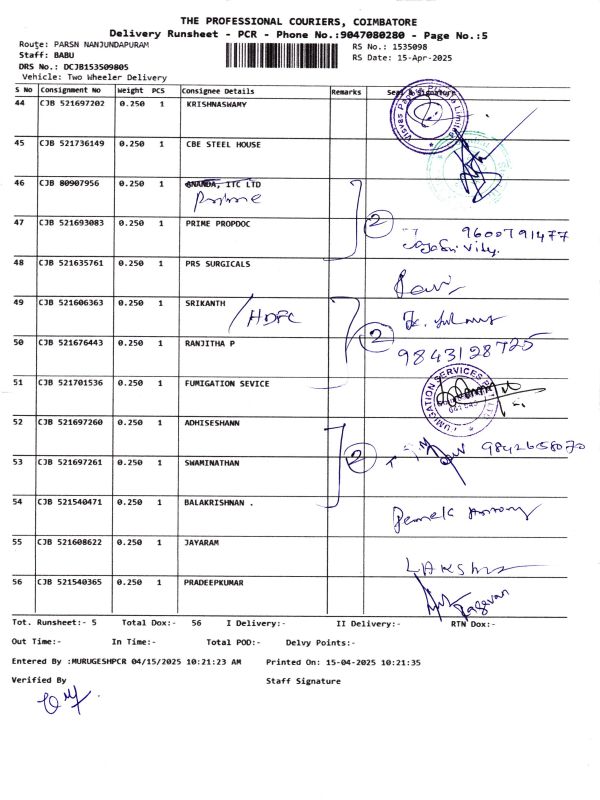 THE PROFESSIONAL COURIERS, COIMBATORE
Delivery Runsheet - PCR - Phone No.:9047080280 - Page No.:5
Route: PARSN NANJUNDAPURAM
RS No.: 1535098
Staff: BABU
RS Date: 15-Apr-2025
DRS No.: DCJB153509805
Vehicle: Two Wheeler Delivery
S No Consignment No Weight PCS Consignee Details Remarks Seal & Signature
44 CJB 521697202 0.250 1 KRISHNASWAMY
45 CJB 521736149 0.250 1 CBE STEEL HOUSE
46 CJB 80907956 0.250 1 ANANDA, ITC LTD
Prime
47 CJB 521693083 0.250 1 PRIME PROPDOC 2 9600791477
48 CJB 521635761 0.250 1 PRS SURGICALS
49 CJB 521606363 0.250 1 SRIKANTH / HDFC
50 CJB 521676443 0.250 1 RANJITHA P 2 9843128725
51 CJB 521701536 0.250 1 FUMIGATION SEVICE
52 CJB 521697260 0.250 1 ADHISESHANN 9842658070
53 CJB 521697261 0.250 1 SWAMINATHAN 2
54 CJB 521540471 0.250 1 BALAKRISHNAN .
55 CJB 521608622 0.250 1 JAYARAM
56 CJB 521540365 0.250 1 PRADEEPKUMAR
Tot. Runsheet:- 5 Total Dox:- 56 I Delivery:- II Delivery:- RTN Dox:-
Out Time:- In Time:- Total POD:- Delvy Points:-
Entered By :MURUGESHPCR 04/15/2025 10:21:23 AM Printed On: 15-04-2025 10:21:35
Verified By Staff Signature